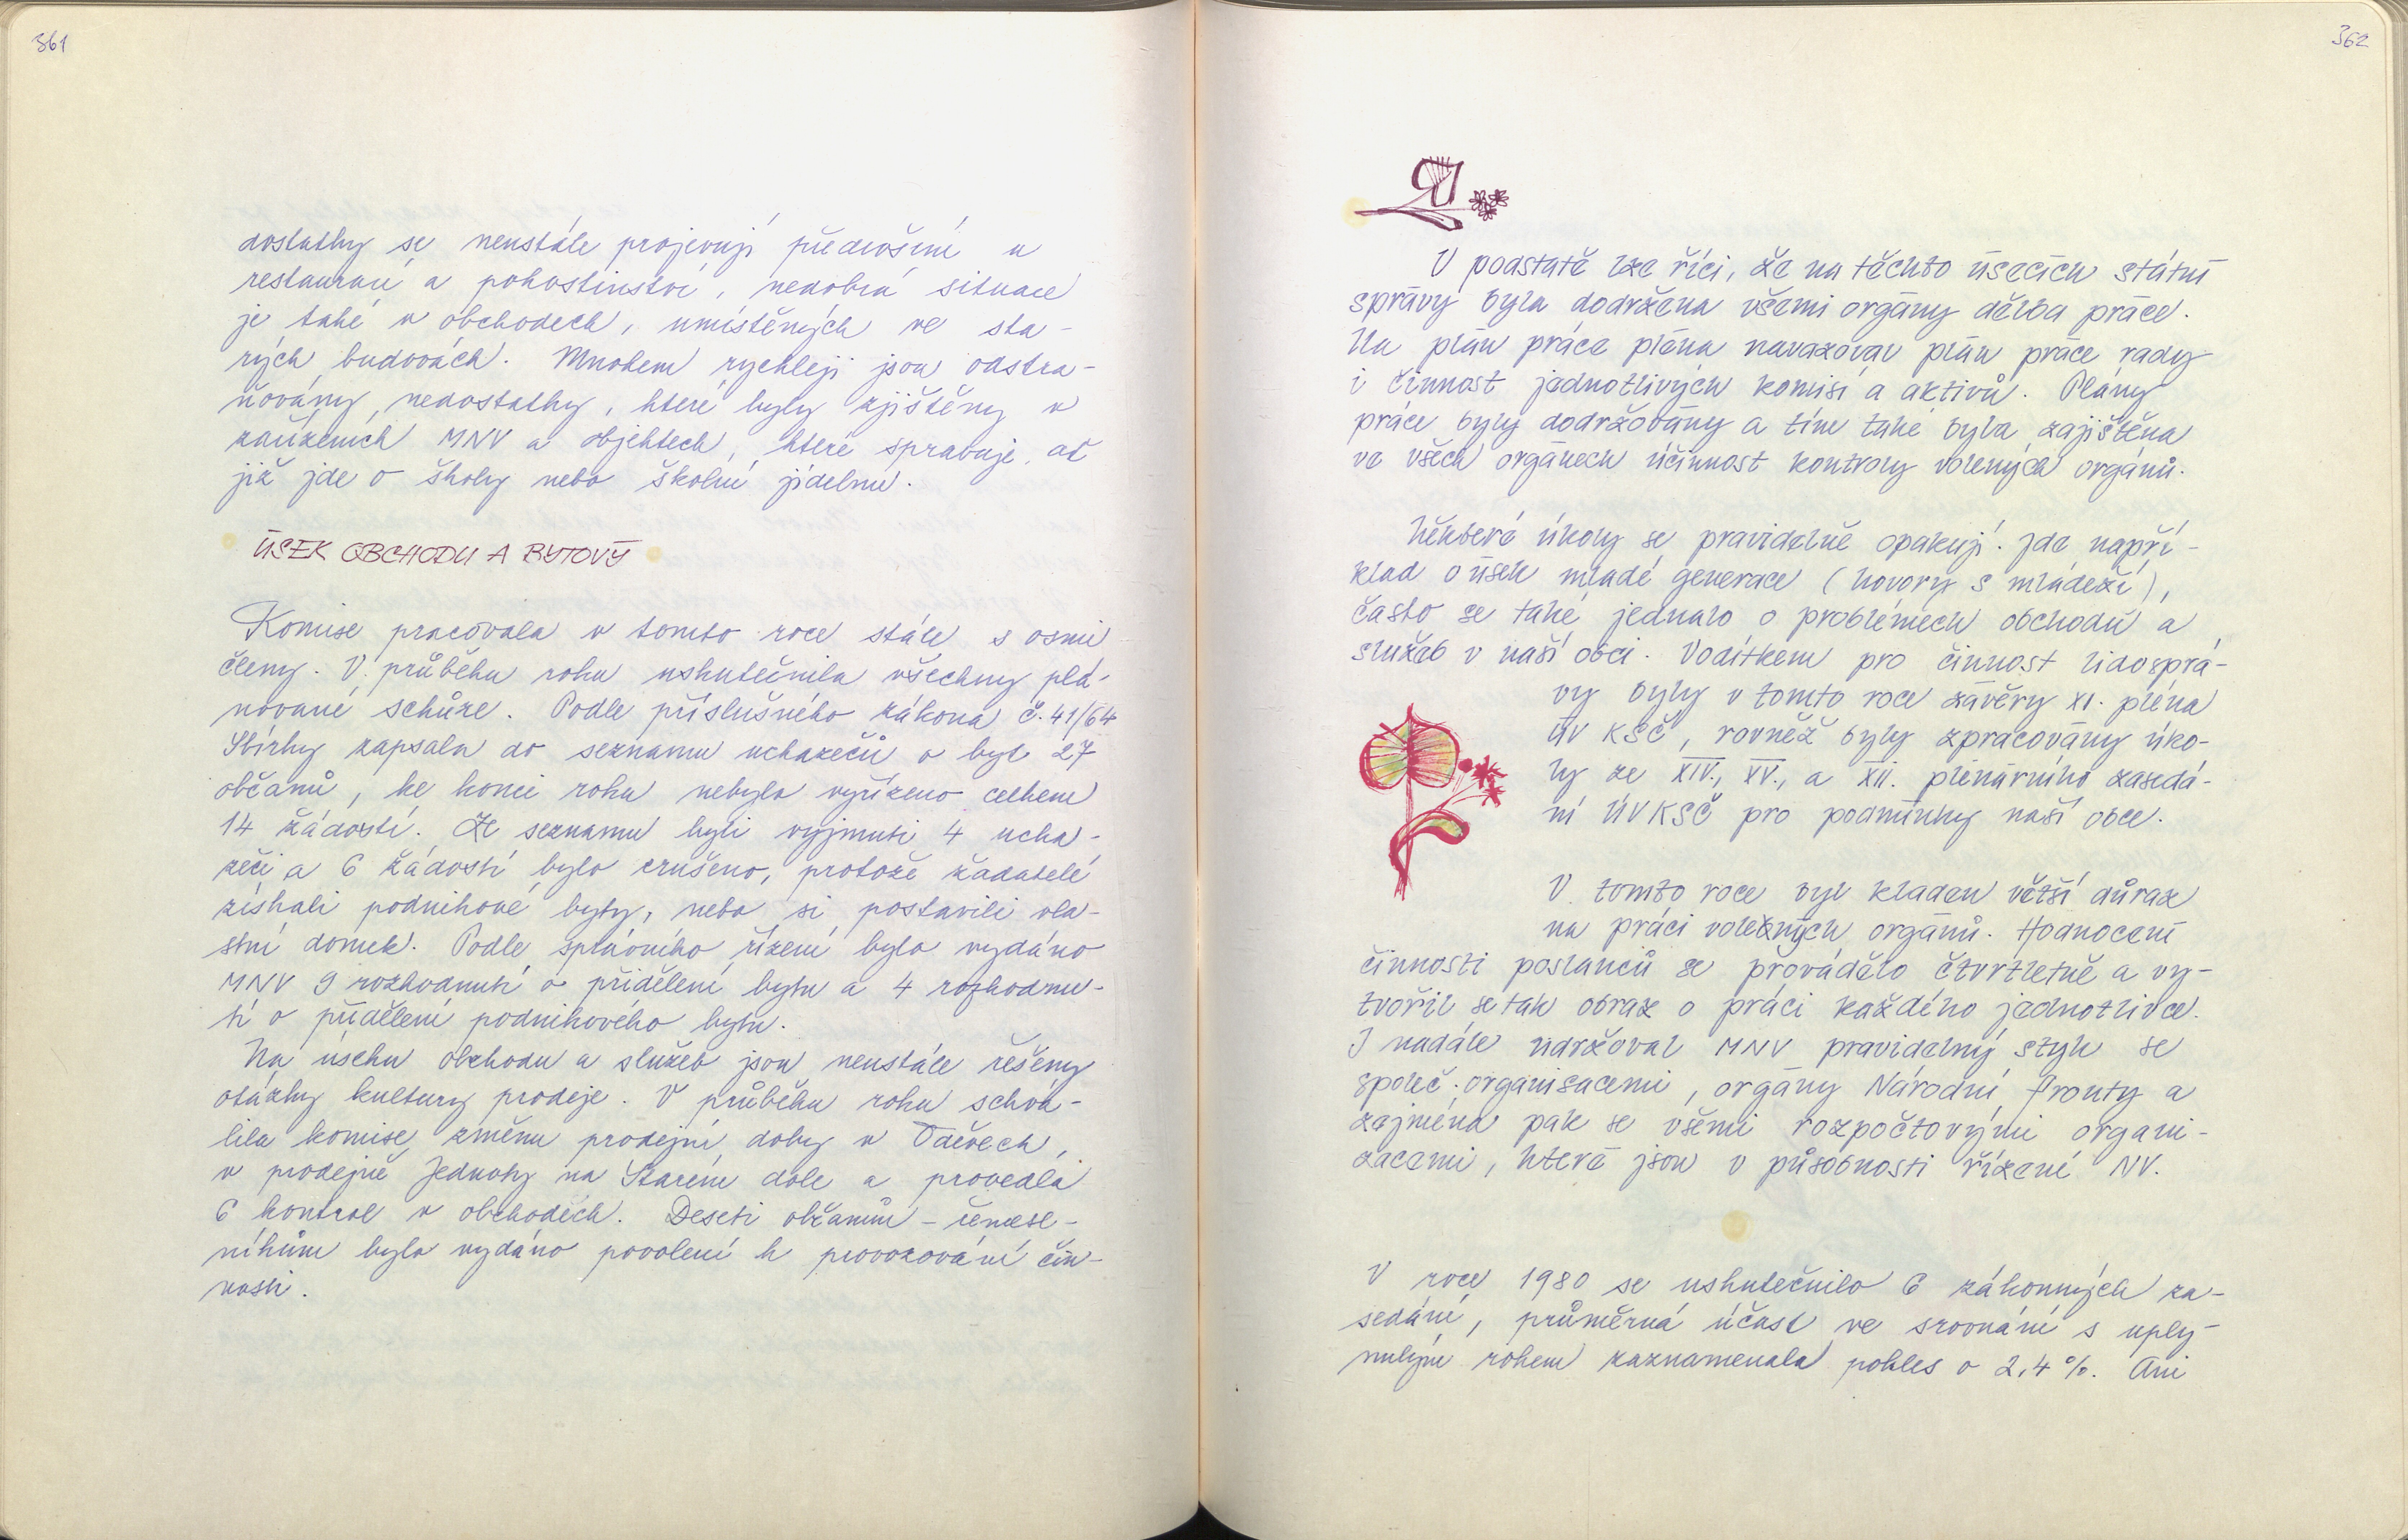 361
dostatky se neustále projevují především v
restauraci a pohostinství, nedobrá situace
je také v obchodech, umístěných ve sta-
rých budovách. Mnohem rychleji jsou odstra-
ňovány nedostatky, které byly zjištěny v
zařízeních MNV a objektech, které spravuje, ať
již jde o školy nebo školní jídelnu.
ÚSEK OBCHODU A BYTOVÝ
Komise pracovala v tomto roce stále s osmi
členy. V průběhu roku uskutečnila všechny plá-
nované schůze. Podle příslušného zákona č. 41/64
Sbírky zapsala do seznamu uchazečů o byt 27
občanů, ke konci roku nebylo vyřízeno celkem
14 žádostí. Ze seznamu byli vyjmuti 4 ucha-
zeči a 6 žádostí bylo zrušeno, protože žadatelé
získali podnikové byty, nebo si postavili vla-
stní domek. Podle správního řízení bylo vydáno
MNV 9 rozhodnutí o přidělení bytu a 4 rozhodnu-
tí o přidělení podnikového bytu.
Na úseku obchodu a služeb jsou neustále řešeny
otázky kultury prodeje. V průběhu roku schvá-
lila komise změnu prodejní doby v Oděvech,
v prodejně Jednoty na Starém dole a provedla
6 kontrol v obchodech. Deseti občanům - řemesl-
níkům bylo vydáno povolení k provozování čin-
nosti.
362
V podstatě lze říci, že na těchto úsecích státní
správy byla dodržena všemi orgány dělba práce.
Na plán práce pléna navazoval plán práce rady
i činnost jednotlivých komisí a aktivů. Plány
práce byly dodržovány a tím také byla zajištěna
ve všech orgánech účinnost kontroly volených orgánů.
Některé úkoly se pravidelně opakují. Jde napří-
klad o úsek mladé generace (hovory s mládeží),
často se také jednalo o problémech obchodu a
služeb v naší obci. Vodítkem pro činnost lidosprá-
vy byly v tomto roce závěry XI. pléna
ÚV KSČ, rovněž byly zpracovány úko-
ly ze XIV., XV., a XII. plenárního zasedá-
ní ÚV KSČ pro podmínky naší obce.
V tomto roce byl kladen větší důraz
na práci volených orgánů. Hodnocení
činnosti poslanců se provádělo čtvrtletně a vy-
tvořil se tak obraz o práci každého jednotlivce.
I nadále udržoval MNV pravidelný styk se
společ. organisacemi, orgány Národní fronty a
zejména pak se všemi rozpočtovými organi-
zacemi, které jsou v působnosti řízení NV.
V roce 1980 se uskutečnilo 6 zákonných za-
sedání, průměrná účast ve srovnání s uply-
nulým rokem zaznamenala pokles o 2,4 %. Ani